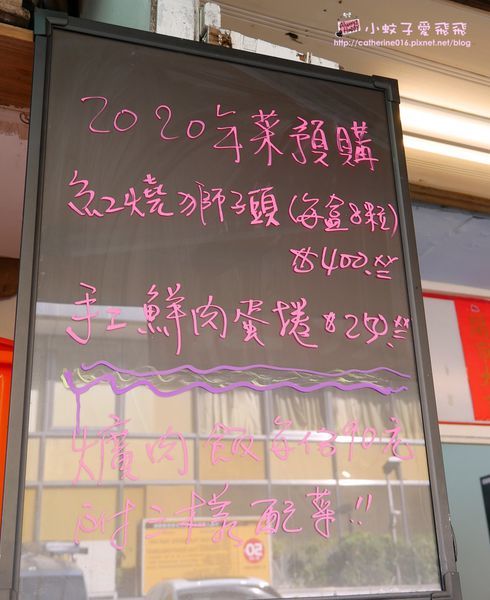 小蚊子愛飛飛
http://catherine016.pixnet.net/blog
2020年菜預購
紅燒獅子頭(每盒8粒)
$400.
手工鮮肉蛋捲 $250.
爌肉飯每份90元
附三樣配菜!!
50